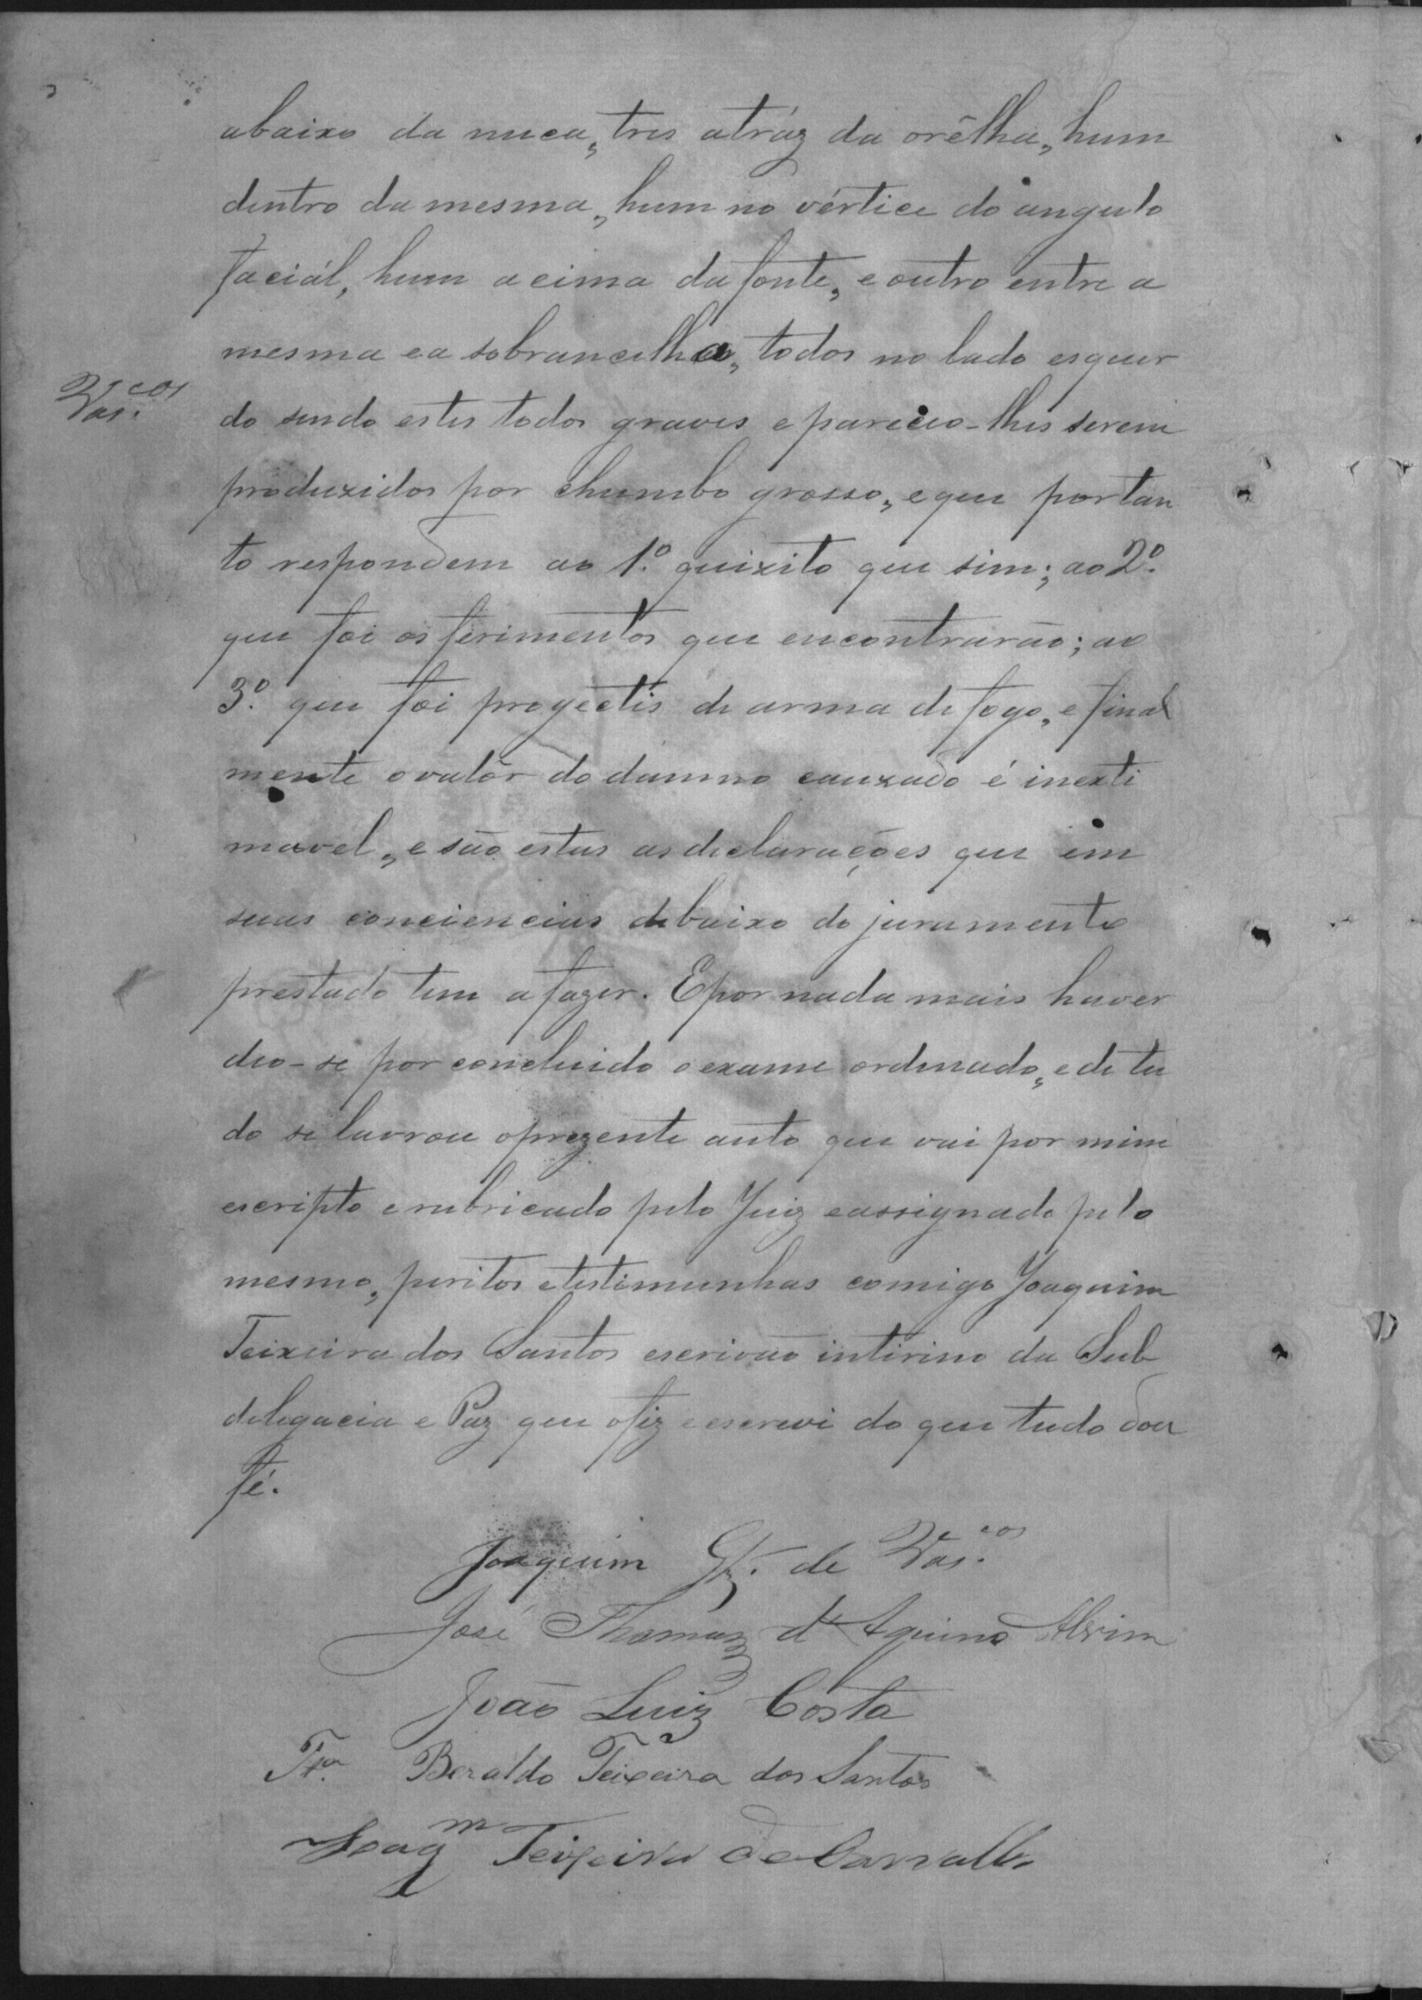 abaixo da nuca, tres atráz da orêlha, hum
dentro da mesma, hum no vértice do angulo
faciál, hum acima da fonte, e outro entre a
mesma e a sobrancelha, todos no lado esquer
Vas.cos
do sendo estes todos graves e pareceo-lhes serem
produzidos por chumbo grosso, e que portan
to respondem ao 1º quixito que sim; ao 2º
que foi os ferimentos que encontrarão; ao
3º que foi proyectis de arma de fogo, e final
mente o valôr do damno cauzado é inexti
mavel, e são estas as declarações que em
suas conciencias debaixo do juramento
prestado tem a fazer. E por nada mais haver
deo-se por concluido o exame ordenado, e de tu
do se lavrou o prezente auto que vai por mim
escripto e rubricado pelo Juiz e assignado pelo
mesmo, peritos e testimunhas comigo Joaquim
Teixeira dos Santos escrivão intirino da Sub
delegacia e Paz que o fiz e escrevi do que tudo dou
fé.
Joaquim Glz. de Vas.cos
José Thomaz d'Aquino Alvim
João Luiz Costa
Txra Beraldo Teixeira dos Santos
Joaqm Teixeira de Carvalho